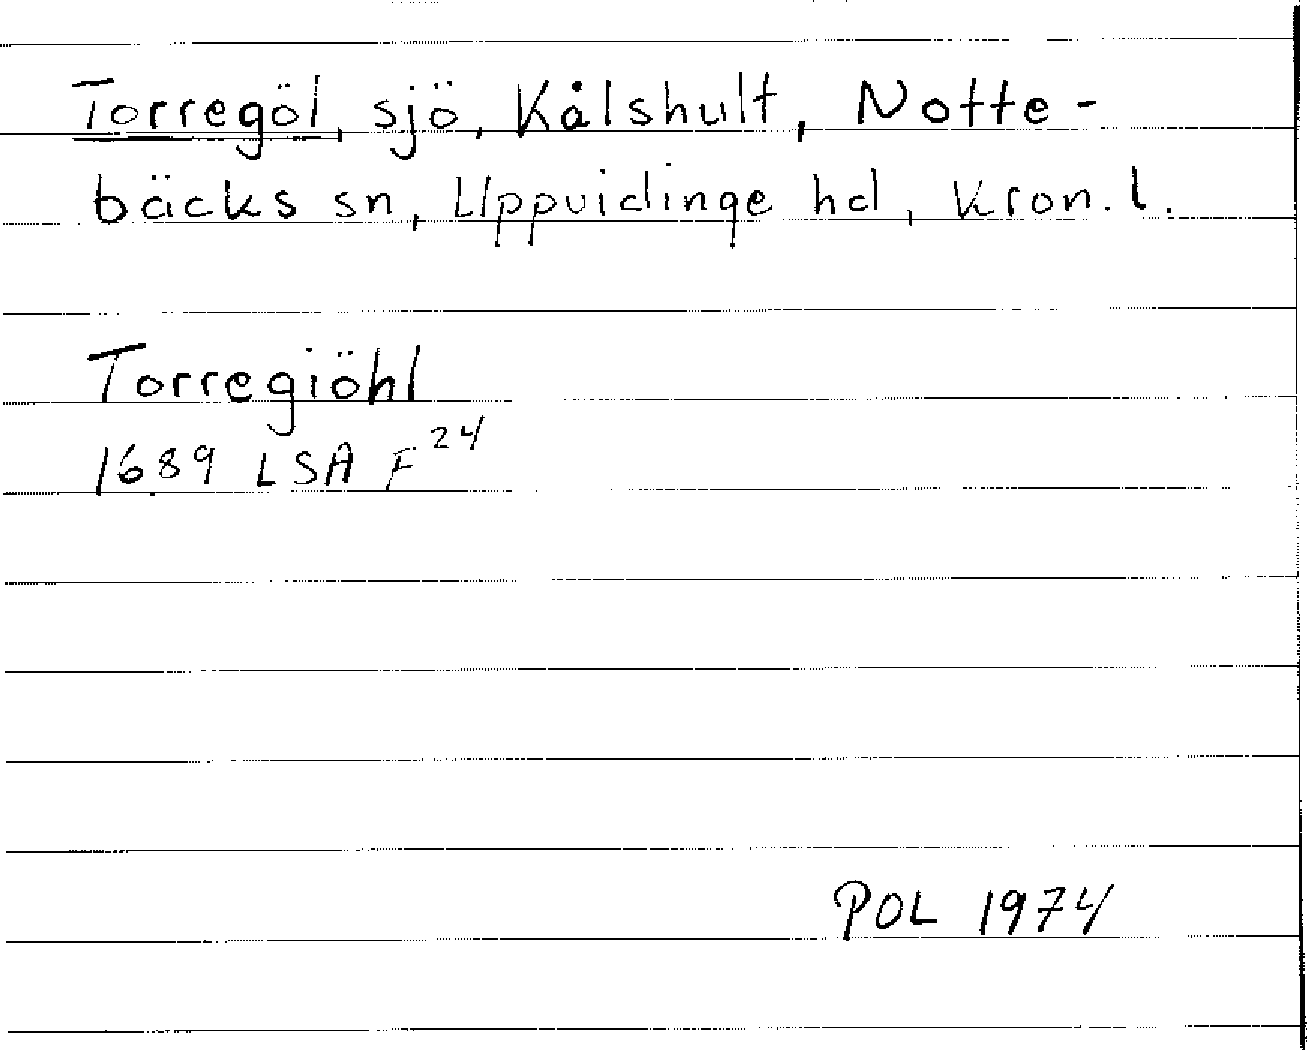 Torregöl, sjö, Kålshult, Notte-
bäcks sn, Uppvidinge hd, Kron. l.
Torregiöhl
1689 LSA F 24
POL 1974